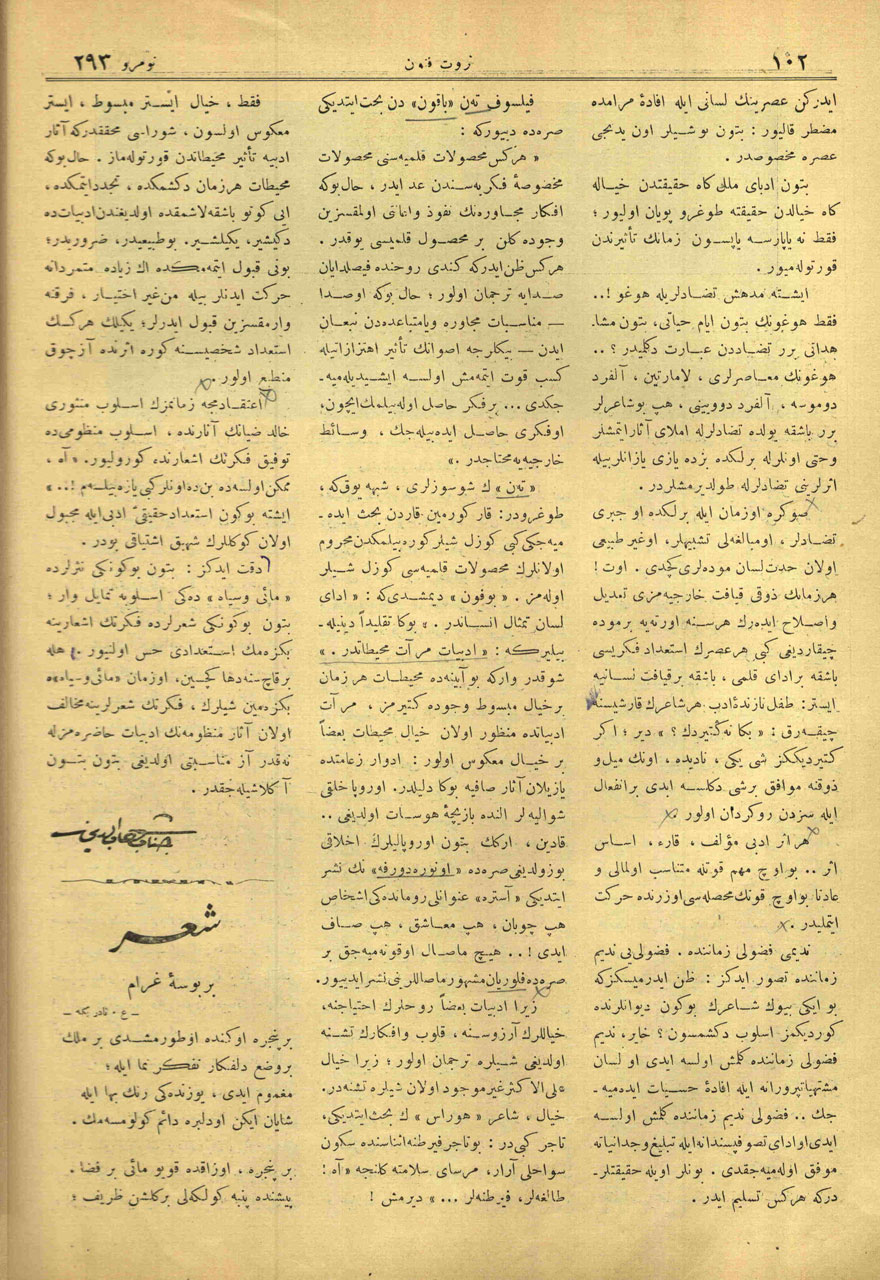 ١٠٢
ثروت فنون
نومرو ٢٩٣
ایدرکن عصرینك لسانی ایله افادهٔ مرامده
مضطر قالیور : بتون بو شیلر اون یدنجی
عصره مخصوصدر .
بتون ادبای ملل کاه حقیقتدن خیاله
کاه خیالدن حقیقته طوغرو پویان اولیور ؛
فقط نه یاپارسه یاپسون زمانك تأثیرندن
قورتوله‌میور .
ایشته مدهش تضادلریله هوغو !..
فقط هوغونك بتون ایام حیاتی، بتون مشا-
هداتی برر تضاددن عبارت دکلیدر ؟ ..
هوغونك معاصرلری ، لامارتین ، آلفرد
دوموسه ، آلفرد دووینیی ، هپ بو شاعرلر
برر باشقه یولده تضادلرله املای آثار ایتمشلر
وحتی اونلرله برلکده بزده یازی یازانلر بیله
اثرلرینی تضادلرله طولدیرمشلردر .
صوکره اوزمان ایله برلکده او جبری
تضادلر ، اومبالغه‌لی تشبیهلر، اوغیر طبیعی
اولان حدت لسان موده‌لری کچدی . اوت !
هر زمانك ذوقی قیافت خارجیه‌مزی تعدیل
واصلاح ایده‌رك هر سنه اورته‌یه بر موده
چیقاردیغی کبی هر عصرك استعداد فکریسی
باشقه بر ادای قلمی ، باشقه بر قیافت لسانیه
ایستر: طفل نازنده‌ٔ ادب هر شاعرك قارشیسنه
چیقه‌رق : « بکا نه کتیردك ؟ » دیر ؛ اکر
کتیردیککز شی یکی ، نادیده ، اونك میل و
ذوقنه موافق برشی دکلسه ابدی بر انفعال
ایله سزدن روکردان اولور .
هر اثر ادبی مؤلف ، قارء ، اساس
اثر .. بو اوچ مهم قوتله متناسب اولمالی و
عادتا بو اوچ قوتك محصله‌سی اوزرنده حرکت
ایتملیدر .
ندیمی فضولی زماننده . فضولی‌یی ندیم
زماننده تصور ایدکز : ظن ایدرمیسکزکه
بو ایکی بیوك شاعرك بوکون دیوانلرنده
کوردیکمز اسلوب دکشمسون ؟ خایر، ندیم
فضولی زماننده کلمش اولسه ایدی او لسان
مشتهیاتپرورانه ایله افادهٔ حسیات ایده‌میه-
جك .. فضولی ندیم زماننده کلمش اولسه
ایدی او ادای تصوفپسندانه ایله تبلیغ وجدانیاته
موفق اوله‌میه‌جقدی . بونلر اویله حقیقتلر-
درکه هرکس تسلیم ایدر .
فیلسوف تەن «باقون» دن بحث ایتدیکی
صره‌ده دییورکه :
« هرکس محصولات قلمیه‌سنی محصولات
مخصوصهٔ فکریه‌سندن عد ایدر ، حال بوکه
افکار مجاوره‌نك نفوذ واعانتی اولمقسزین
وجوده کلن بر محصول قلمیسی یوقدر .
هرکس ظن ایدرکه کندی روحنده فیصلدایان
صدایه ترجمان اولور ؛ حال بوکه اوصدا
— مناسبات مجاوره ویامتباعده‌دن نبعان
ایدن — بیکلرجه اصواتك تأثیر اهتزازاتیله
کسب قوت ایتمه‌مش اولسه ایشیدیله‌میه-
جکدی ... بر فکر حاصل اوله‌بیلمك ایچون،
اوفکری حاصل ایده‌بیله‌جك ، وسائط
خارجیه‌یه محتاجدر .»
« تەن » ك شو سوزلری ، شبهه یوق‌که ،
طوغرودر: قار کورمین قاردن بحث ایده-
میه‌جکی کبی کوزل شیلر کوره‌بیلمکدن محروم
اولانلرك محصولات قلمیه‌سی کوزل شیلر
اوله‌مز . « بوفون » دیمشدی‌که : « ادای
لسان تمثال انساندر . » بوکا تقلیداً دینیله-
بیلیرکه : « ادبیات مرآت محیطاتدر . »
شوقدر وارکه بو آیینه‌ده محیطات هر زمان
بر خیال مبسوط وجوده کتیرمز ، مرآت
ادبیاتده منظور اولان خیال محیطات بعضاً
بر خیال معکوس اولور : ادوار زعامتده
یازیلان آثار صافیه بوکا دلیلدر. اوروپا خلقی
شوالیه‌لر النده بازیچهٔ هوسات اولدیغی ..
قادین ، ارکك بتون اوروپالیلرك اخلاقی
بوزولدیغی صره‌ده « اونوره دورفه » نك نشر
ایتدیکی « آستره » عنوانلی رومانده‌کی اشخاص
هپ چوبان ، هپ معاشق ، هپ صاف
ایدی !.. هیچ ماصال اوقونه‌میه‌جق بر
صره‌ده فلوریان مشهور ماصاللرینی نشر ایدییور.
زیرا ادبیات بعضاً روحلرك احتیاجنه،
خیاللرك آرزوسنه ، قلوب وافکارك تشنه
اولدیغی شیلره ترجمان اولور ؛ زیرا خیال
علی الاکثر غیر موجود اولان شیلره تشنه‌در.
خیال ، شاعر « هوراس » ك بحث ایتدیکی،
تاجر کبی‌در : بو تاجر فیرطنه اثناسنده سکون
سواحلی آرار، مرسای سلامته کلنجه «آه :
طالغه‌لر، فیرطنه‌لر ... » دیرمش !
فقط ، خیال ایستر مبسوط ، ایستر
معکوس اولسون ، شوراسی محققدرکه آثار
ادبیه تأثیر محیطاتدن قورتوله‌ماز . حال بوکه
محیطات هر زمان دکشمکده ، تجدد ایتمکده،
ایی کوتو باشقه‌لاشمقده اولدیغندن ادبیات ده
دکیشیر، یکیلشیر. بو طبیعیدر، ضروریدر؛
بونی قبول ایتمه‌مکده اك زیاده متمردانه
حرکت ایدنلر بیله من غیر اختیار ، فرقنه
وارمقسزین قبول ایدرلر؛ یکیلك هرکسك
استعداد شخصیسنه کوره اثرنده آز چوق
منطبع اولور .
اعتقادمجه زمانمزك اسلوب منثوری
خالد ضیانك آثارنده ، اسلوب منظومی ده
توفیق فکرتك اشعارنده کورولیور. « آه ،
ممکن اولسه‌ده بن ده اونلر کبی یازه‌بیلسه‌م !.. »
ایشته بوکون استعداد حقیقئ ادبی ایله مجبول
اولان کوکللرك شهیق اشتیاقی بودر .
دقت ایدکز : بتون بوکونکی نثرلرده
« مائی وسیاه » ده‌کی اسلوبه تمایل وار ؛
بتون بوکونکی شعرلرده فکرتك اشعارینه
بکزه‌مك استعدادی حس اولنیور . هله
بر قاچ سنه دها کچسین، اوزمان «مائی وسیاه» ه
بکزه‌مین شیلرك ، فکرتك شعرلرینه مخالف
اولان آثار منظومه‌نك ادبیات حاضره‌مزله
نه‌قدر آز مناسبتی اولدیغی بتون بتون
آکلاشیله‌جقدر .
جناب شهاب‌الدین
شعر
بر بوسهٔ غرام
— ع . نادر بکه —
بر پنجره اوکنده اوطورمشدی بر ملك
بر وضع دلفکار تفکر نما ایله ؛
مغموم ایدی ، یوزنده‌کی رنك بها ایله
شایان ایکن اودلبره دائم کولومسه‌مك .
بر پنجره ، اوزاقده قویو مائی بر فضا .
پیشنده پنبه کولکه‌لی بر کلشن ظریف ؛